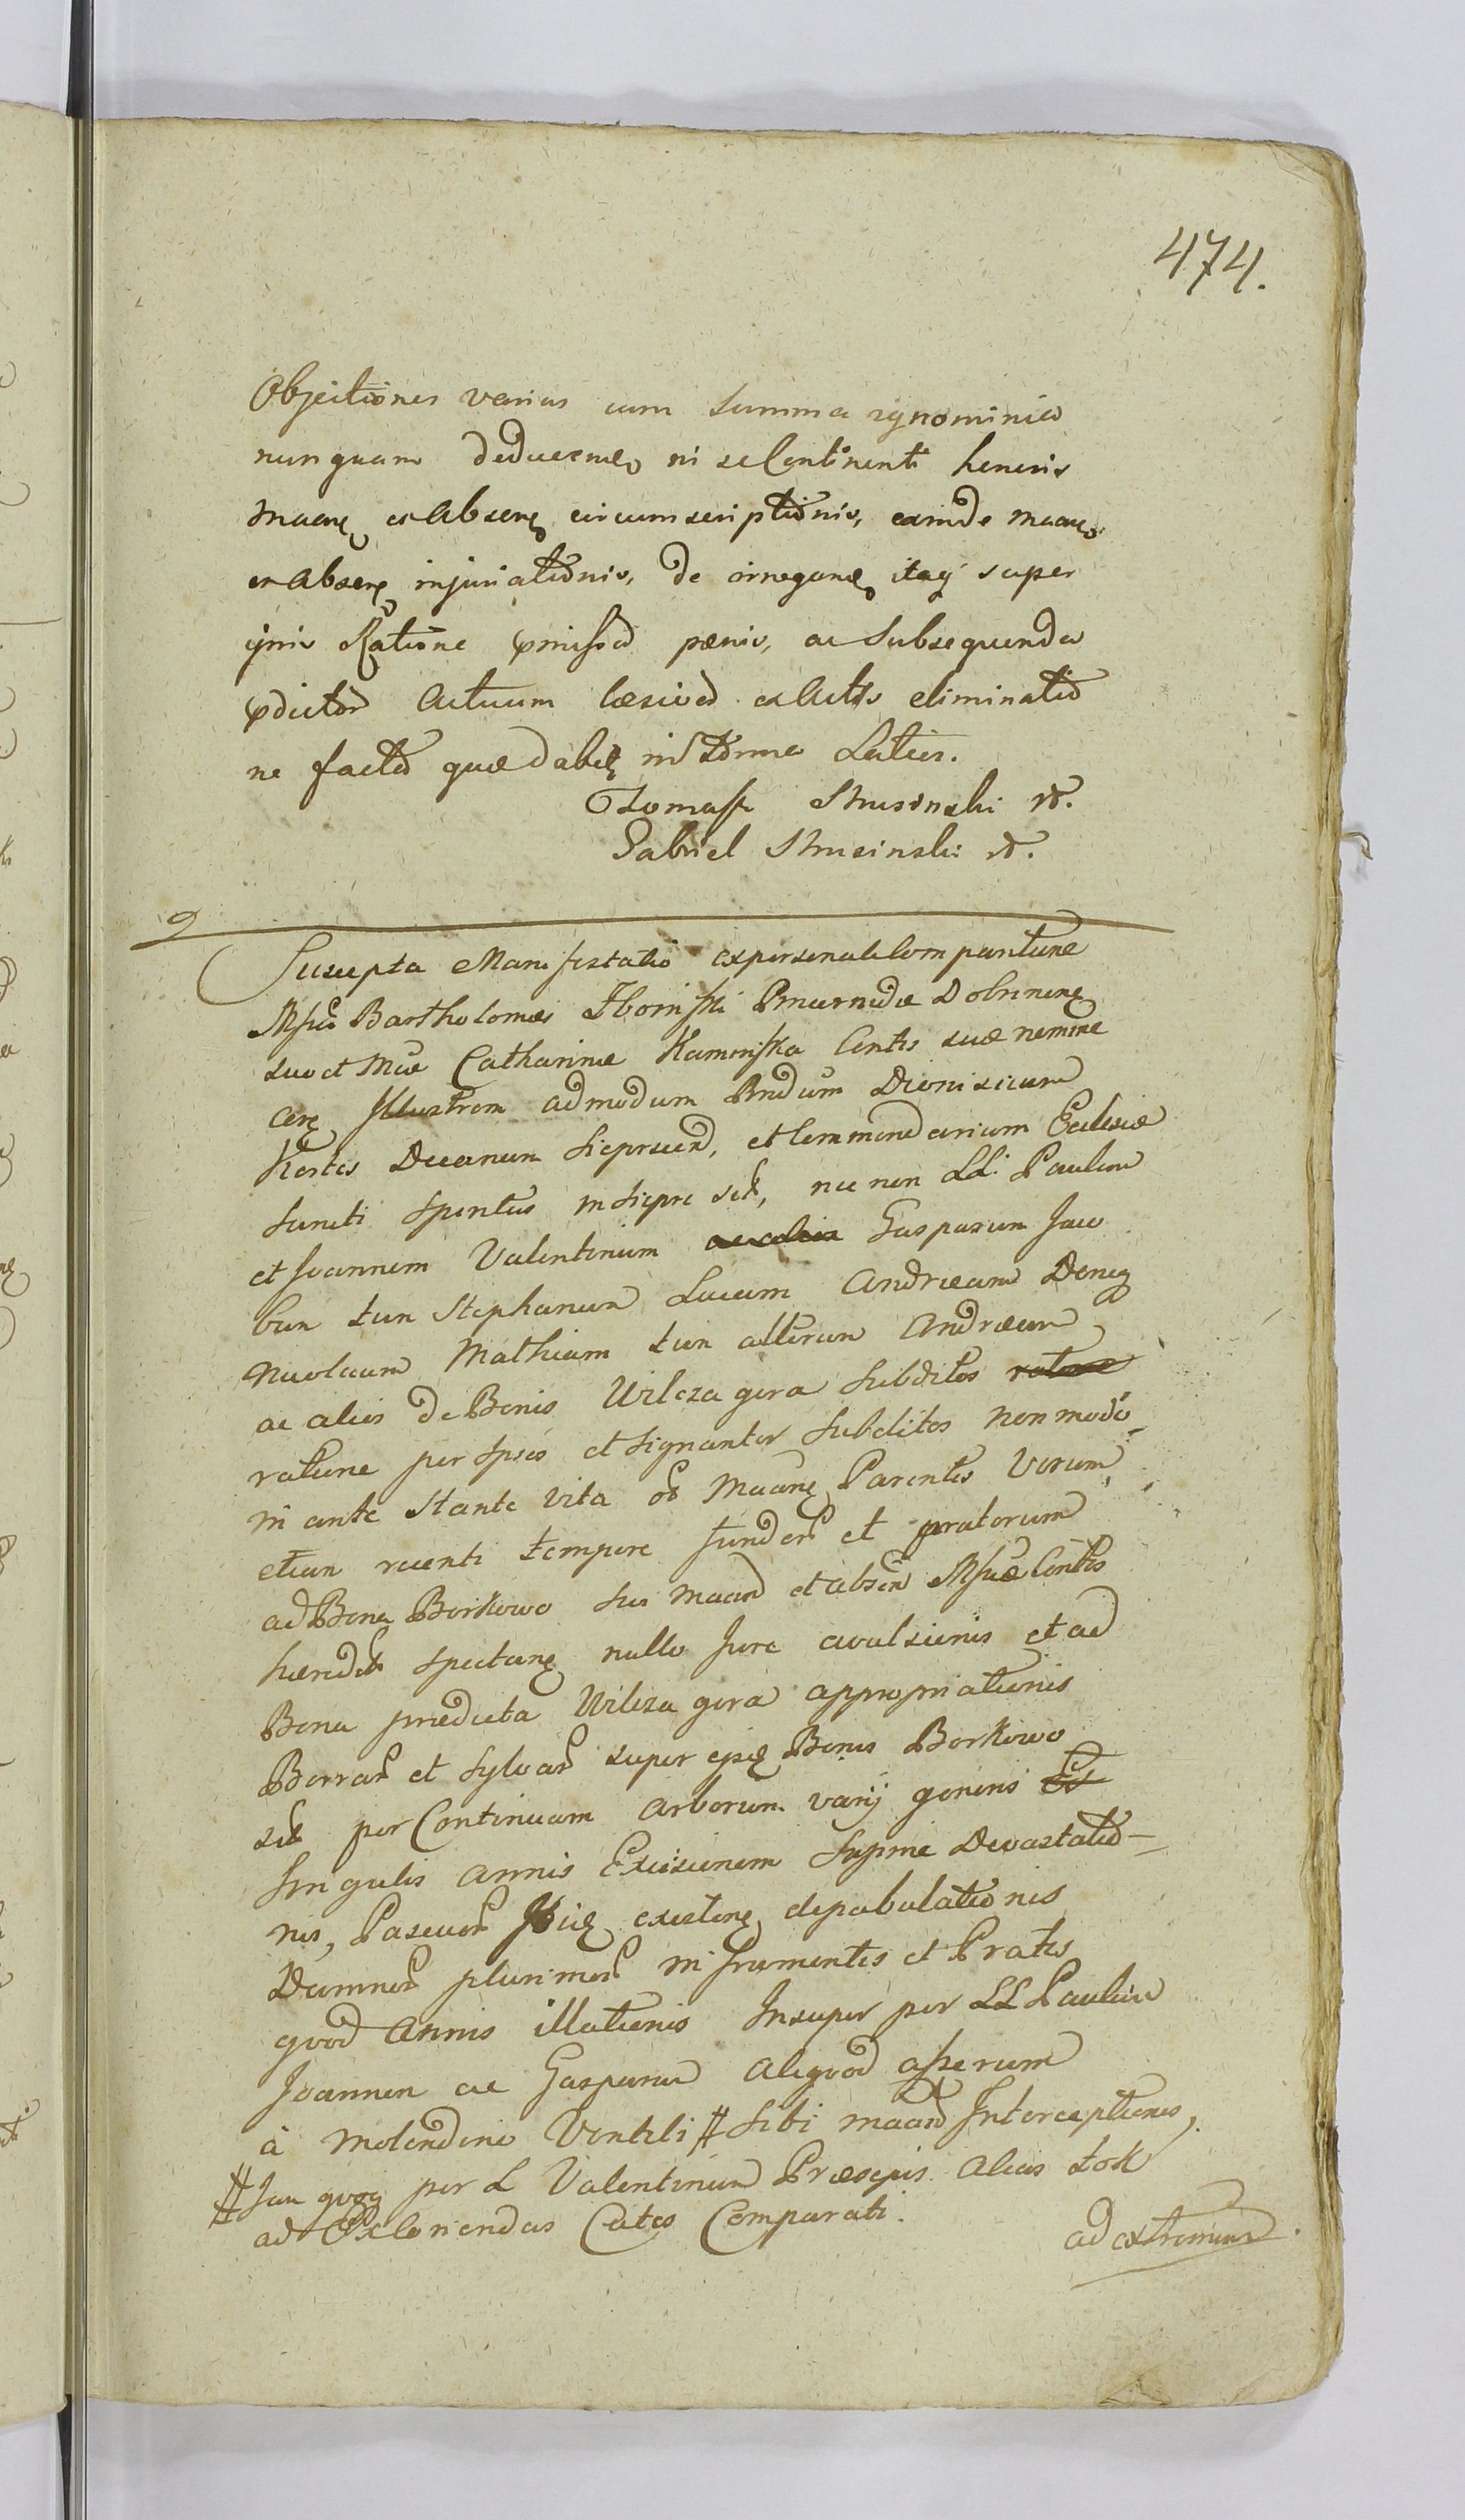 474.
Objectiones varias cum summa ignominia
nunquam deducemē, in se Continenti honoris
Maanę et Absenę circumscriptionis, eamde Maanę
et Absenę injuriationis, de irroganę itaq super
ijsmi Ratione pmissor pænis, ac Subsequenda
pdictor Actuum læsivor ex Actis eliminatio
ne facto quæ dabię in forma Latior.
Tomasz Mrusinski
Gabriel
9
Suscepta Manifestatio ex personali Comparitione
Msfici Bartholomæi Zboinski Pincernidæ Dobrinenę
suo et Mæ Catharinæ Kaminska Contis suæ nomine
Cerę Illustrem admodum Rndum Dionisium
Kostis Decanum Sieprscen, et Commendarium Ecclesiæ
Sancti Spiritus in Siepre sit, nec non LL. Paulum
et Joannem Valentinum Gasparum Jaco
bum tum Stephanum Lucam Andream Deneg
Nicolaum Mathiam tum alterum Andream
ac alios de Bonis Wilcza gora Subditos
ratione per Ipsos et signanter Subditos non modo
in ante stante vita ol Maanę Parentis Verum
etiam recenti tempore fundor et pratorum
ad Bona Borkowo sui Maan et absen Msficæ Contis
hæredit spectanę nullo Jure avulsionis et ad
Bona prædicta Wilcza gora appropriationis
Borrar et Sylvar super ejsdę Bonis Borkowo
sit per Continuam arborum varij generis
Singulis annis Excisionem Supme Devastatio-
nis, Pascuor Ibię existenę depabulationis
Damnor plurimor in frumentis et Pratis
quod Annis illationis Insuper per LL Paulum
Joannem ac Gasparum aliquod asserum
à Molendino Ventili # Sibi Maan Interceptionis,
# Jan quoq per L Valentinum Præsepis alias tok
ad Celsoriendas Cutes Comparati.
ad extremum.